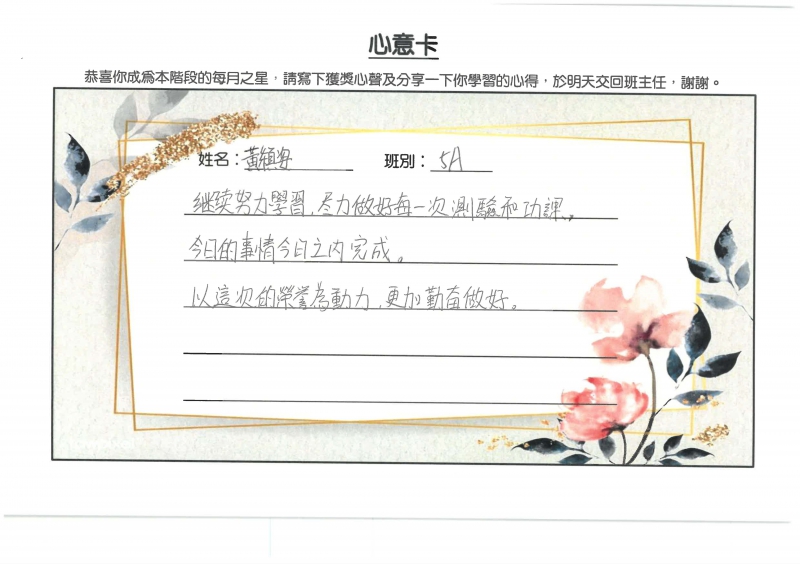 心意卡
恭喜你成為本階段的每月之星，請寫下獲獎心聲及分享一下你學習的心得，於明天交回班主任，謝謝。
姓名：黃穎安 班別：5A
继续努力學習，尽力做好每一次測驗和功課。
今日的事情今日之内完成。
以這次的榮誉為動力，更加勤奋做好。